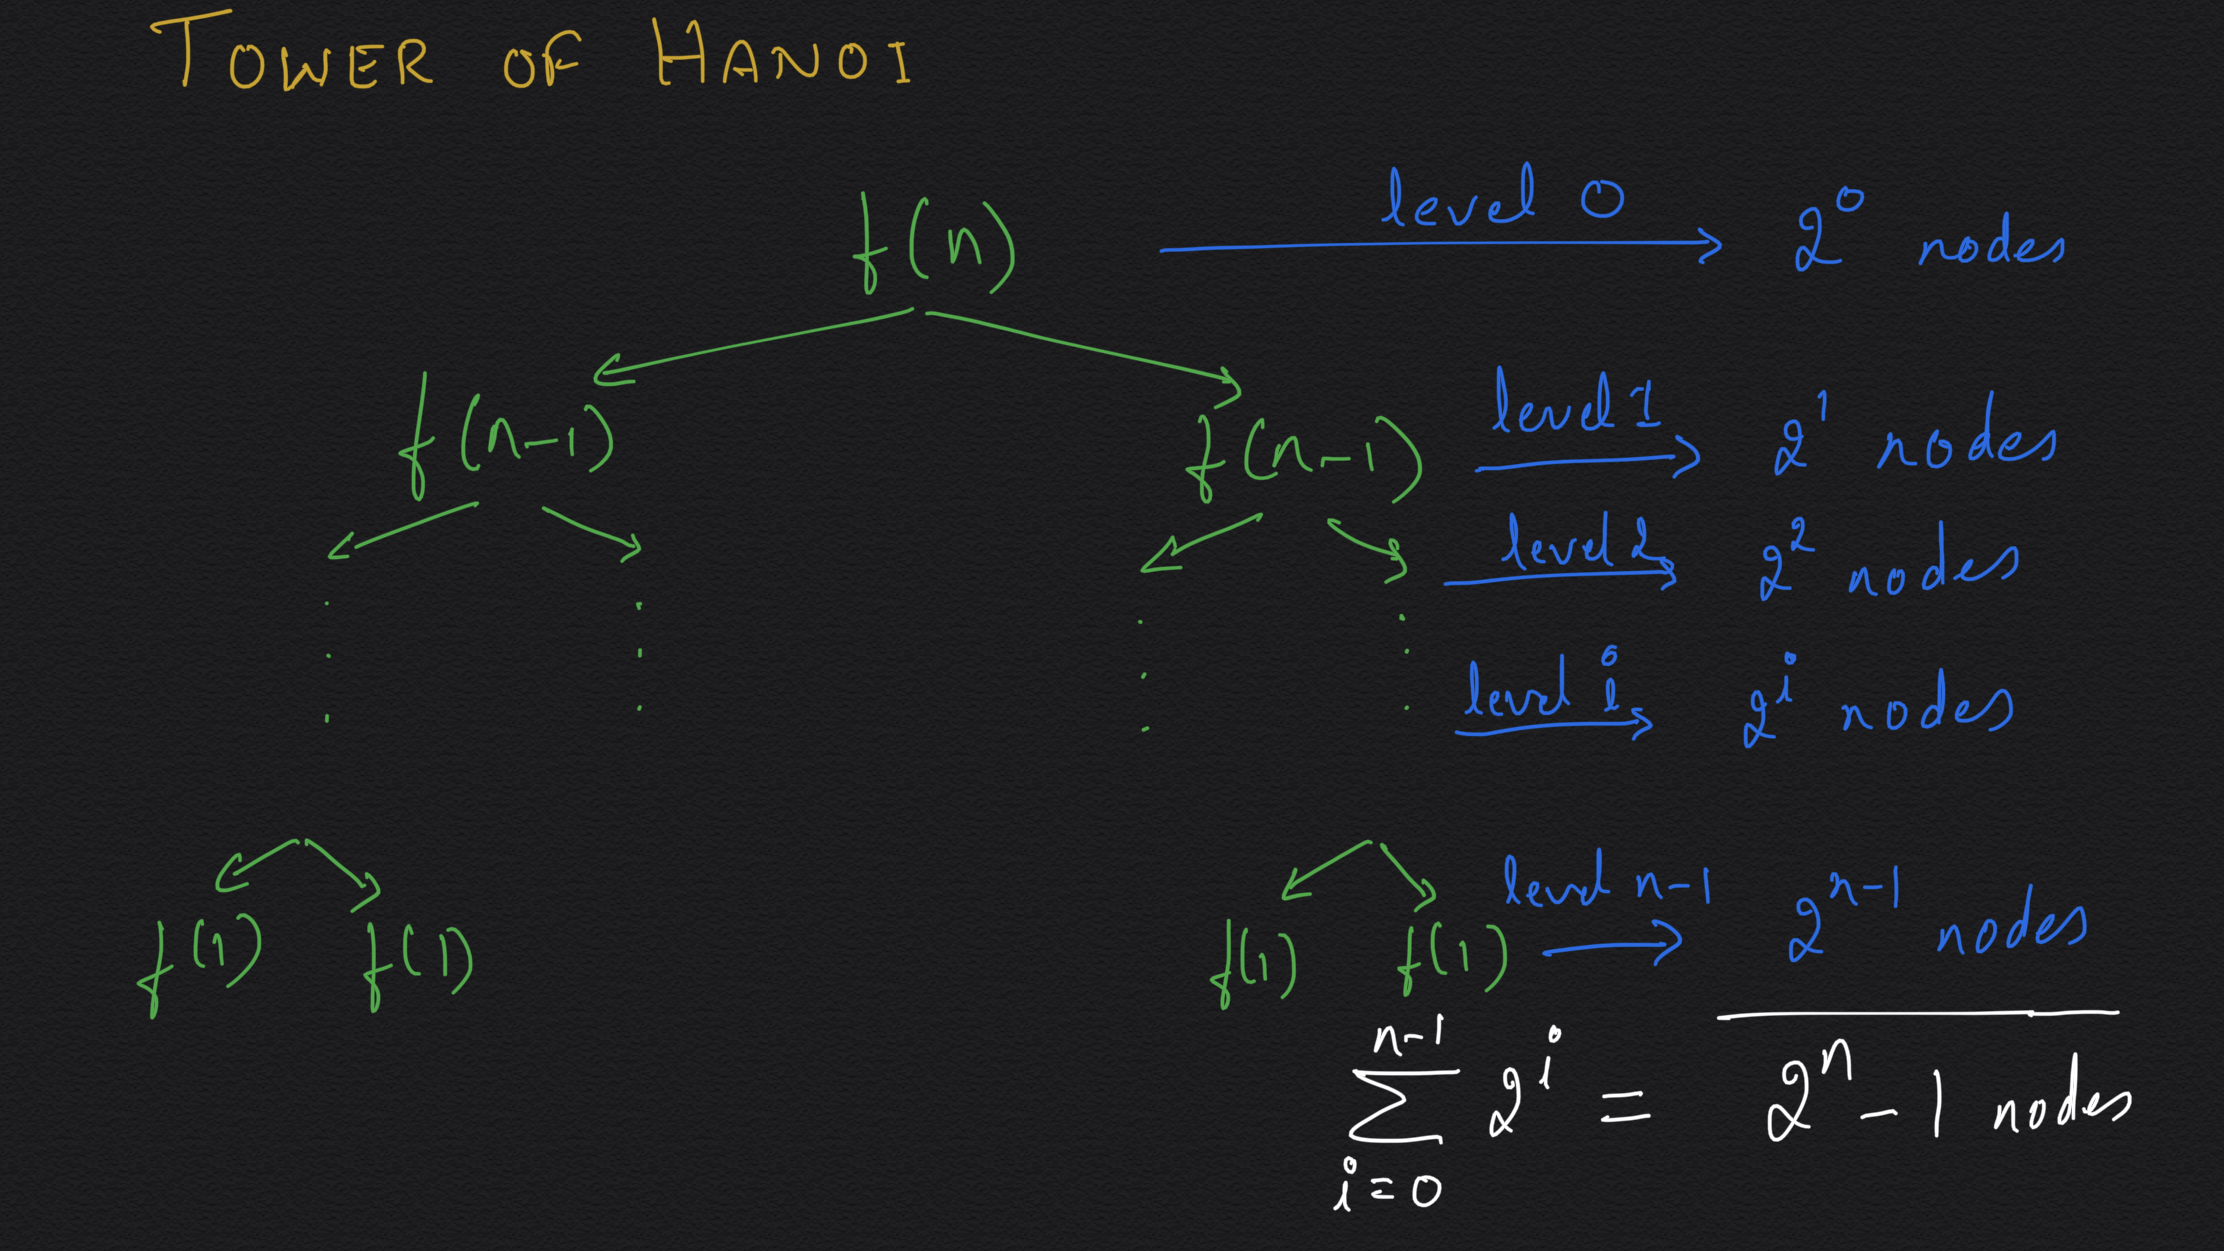 TOWER OF HANOI
f(n) level 0 2^0 nodes
f(n-1) f(n-1) level 1 2^1 nodes
level 2 2^2 nodes
level i 2^i nodes
f(1) f(1) f(1) f(1) level n-1 2^{n-1} nodes
\sum_{i=0}^{n-1} 2^i = 2^n - 1 nodes